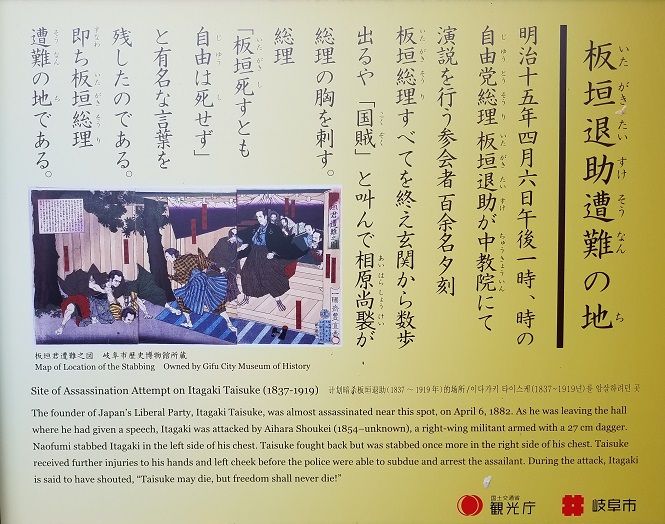 板垣退助遭難の地
いたがきたいすけそうなんち
明治十五年四月六日午後一時、時の
自由党総理板垣退助が中教院にて
じゆうとうそうりいたがきたいすけちゅうきょういん
演説を行う参会者百余名夕刻
板垣総理すべてを終え玄関から数歩
いたがきそうり
出るや「国賊」と叫んで相原尚褧が
こくぞくあいはらしょうけい
総理の胸を刺す。
総理
「板垣死すとも
いたがきし
自由は死せず」
じゆうし
と有名な言葉を
残したのである。
即ち板垣総理
すなわいたがきそうり
遭難の地である。
そうなんち
板垣君遭難之図 岐阜市歴史博物館所蔵
Map of Location of the Stabbing Owned by Gifu City Museum of History
Site of Assassination Attempt on Itagaki Taisuke (1837-1919) 计划暗杀板垣退助(1837～1919年)的场所/이타가키 타이스케(1837~1919년)를 암살하려던 곳
The founder of Japan's Liberal Party, Itagaki Taisuke, was almost assassinated near this spot, on April 6, 1882. As he was leaving the hall
where he had given a speech, Itagaki was attacked by Aihara Shoukei (1854–unknown), a right-wing militant armed with a 27 cm dagger.
Naofumi stabbed Itagaki in the left side of his chest. Taisuke fought back but was stabbed once more in the right side of his chest. Taisuke
received further injuries to his hands and left cheek before the police were able to subdue and arrest the assailant. During the attack, Itagaki
is said to have shouted, "Taisuke may die, but freedom shall never die!"
国土交通省
観光庁
岐阜市